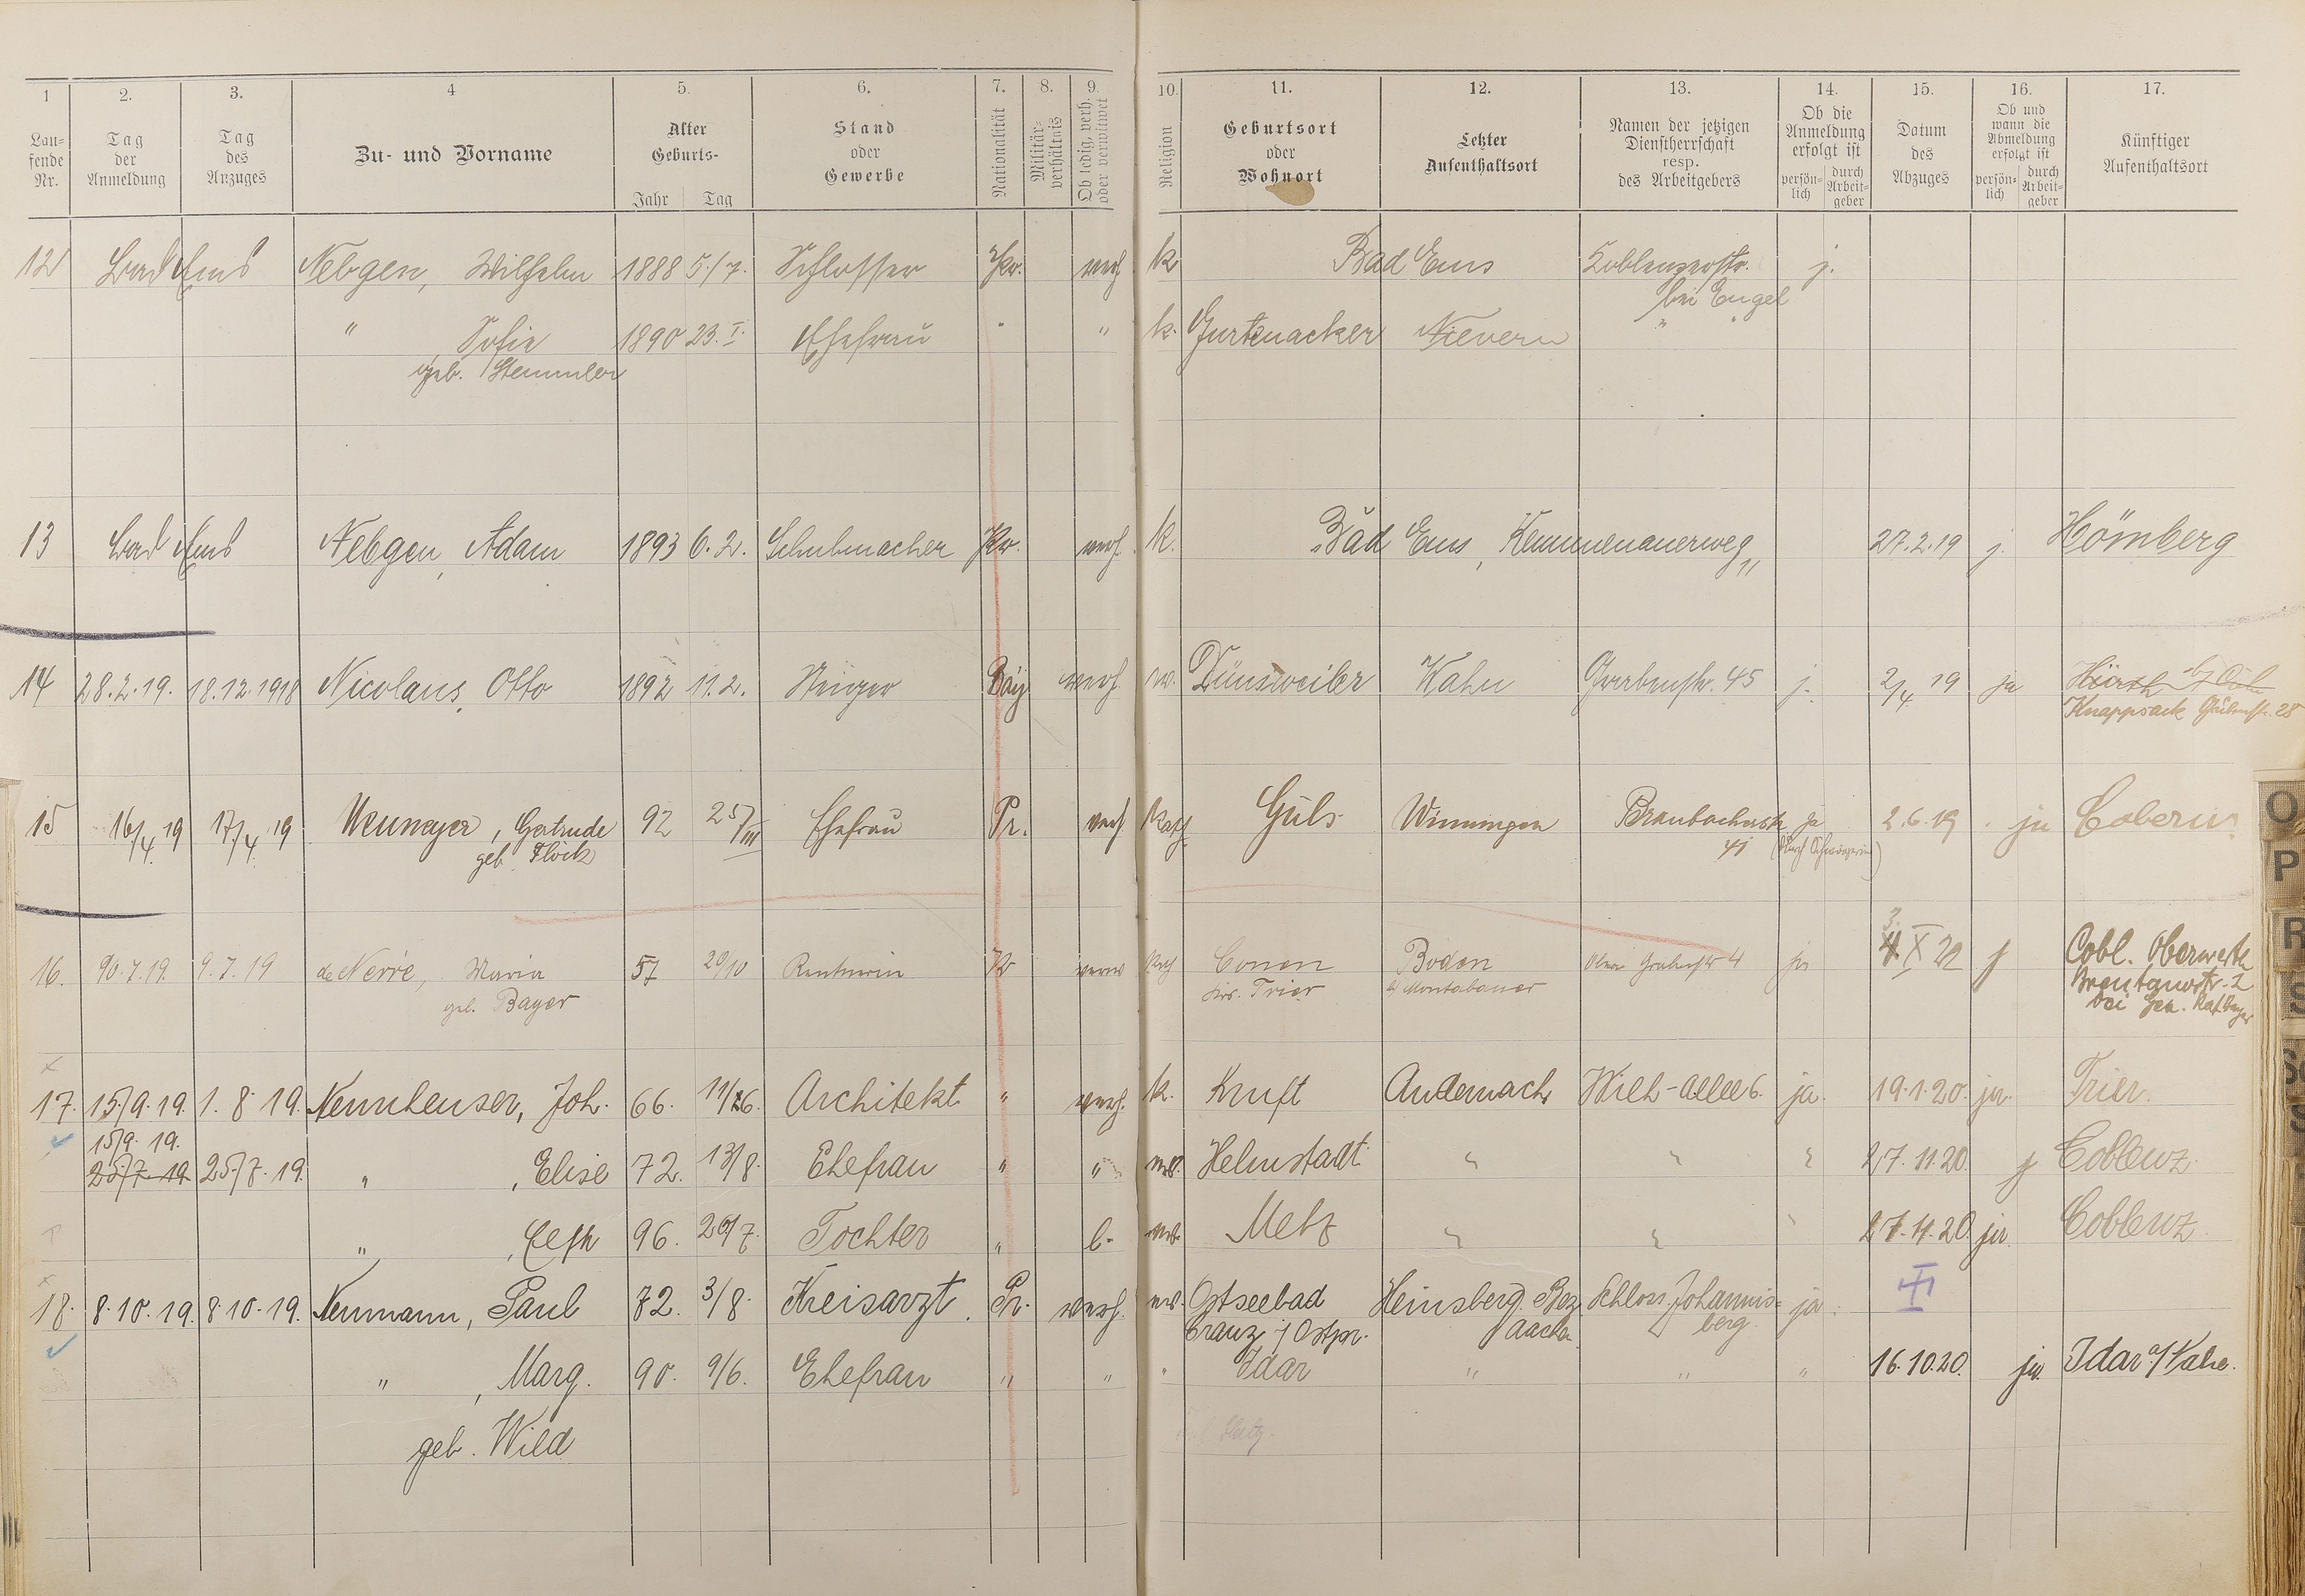 1 2. 3. 4 5. 6. 7. 8. 9. 10. 11. 12. 13. 14. 15. 16. 17.
Lau-
fende
Nr.
Tag
der
Anmeldung
Tag
des
Anzuges
Zu- und Vorname
Alter
Geburts-
Jahr Tag
Stand
oder
Gewerbe
Nationalität
Militär-
verhältnis
Ob ledig, verh.
oder verwitwet
Religion
Geburtsort
oder
Wohnort
Letzter
Aufenthaltsort
Namen der jetzigen
Dienstherrschaft
resp.
des Arbeitgebers
Ob die
Anmeldung
erfolgt ist
persön-
lich
durch
Arbeit-
geber
Datum
des
Abzuges
Ob und
wann die
Abmeldung
erfolgt ist
persön-
lich
durch
Arbeit-
geber
Künftiger
Aufenthaltsort
12 Bad Ems Nebgen, Wilhelm 1888 5./7. Schlosser Pr. verh. k Bad Ems Koblenzerstr. j.
bei Engel
" Sofie 1890 23. I. Ehefrau " " k. Gurtenacker Nievern " "
geb. Stemmler
13 Bad Ems Nebgen, Adam 1893 6. 2. Schuhmacher Pr. verh. k. Bad Ems, Kemmenauerweg 27.2.19 j. Hömberg
14 28.2.19. 18.12.1918 Nicolaus, Otto 1892 11.2. Bay verh. Wahn 45 j. 2/4 19 ja Hürth
Knappsack 28
15 16/4 19 17/4 19 Neumeyer, Gertrude 92 25/III Ehefrau Pr. verh kath. Güls Winningen Braubacherstr. ja 2.6.19 ja Cobern
geb. Flöck 41 (durch Schwägerin)
16. 9.7.19 de Nerée, Maria 57 20/10 Rentnerin Pr verw kath Conen Boden 4 ja X 22 j Cobl. Oberwerth
geb. Bayer Krs. Trier b/ Montabaur Brentanostr. 2
bei Geh. Rat Bayer
17. 15/9. 19. 1. 8. 19. Nennheuser, Joh. 66. Architekt " verh. k. Kruft Andernach Wilh-allee 6. ja. 19.1.20. ja. Trier.
15/9. 19.
25/7. 19 25/7. 19. " , Elise 72. 13/8. Ehefrau " " Helmstadt " " " 27.11.20. j Coblenz.
" 96. 20/7. Tochter " l. Metz " " " ja. Coblenz
18. 8.10.19. 8.10.19. Neumann, Paul 72. 3/8. Kreisarzt. Pr. verh. Ostseebad Heinsberg. Bez. Schloss Johannis- ja.
Cranz i/ Ostpr. Aachen berg.
" , Marg. 90. 9/6. Ehefrau " " " Idar " " " 16.10.20. ja. Idar a/ Nahe.
geb. Wild
O
P
R
S